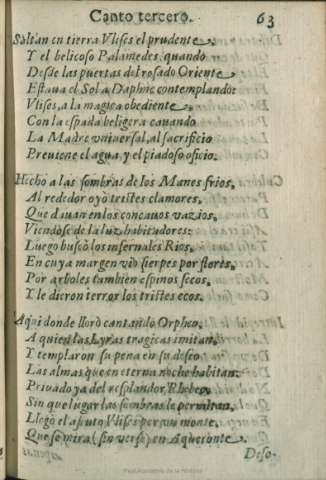 Canto tercero. 63
Saltan en tierra Vlises el prudente,
Y el belicoso Palamedes, quando
Desde las puertas del rosado Oriente
Estaua el Sol a Daphne contemplando:
Vlises, a la magica obediente,
Con la espada beligera cauando
La Madre vniuersal, al sacrificio
Preuiene el agua, y el piadoso oficio.
Hecho a las sombras de los Manes frios,
Al rededor oyò tristes clamores,
Que dauan en los concauos vazios,
Viendose de la luz habitadores:
Luego buscò los infernales Rios,
En cuya margen viò sierpes por flores,
Por arboles tambien espinos secos,
Y le dieron terror los tristes ecos.
Aqui donde llorò cantando Orpheo,
A quien las Lyras tragicas imitan,
Y templaron su pena en su deseo
Las almas que en eterna noche habitan:
Priuado ya del resplandor Phebeo,
Sin que lugar las sombras le permitan,
Llegò el astuto Vlises por vn monte,
Que se mira (sin verse) en Aqueronte.
Deso-
Real Academia de la Historia